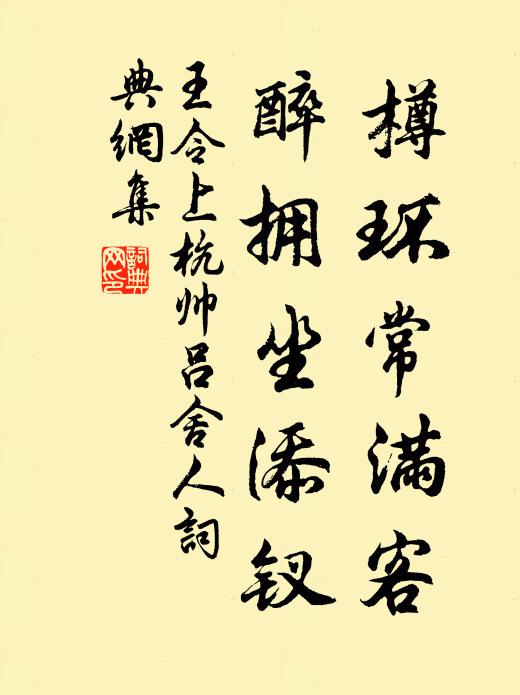 樽环常满客
醉拥坐添钗
王令上杭帅吕舍人詞
典網集
詞典网印